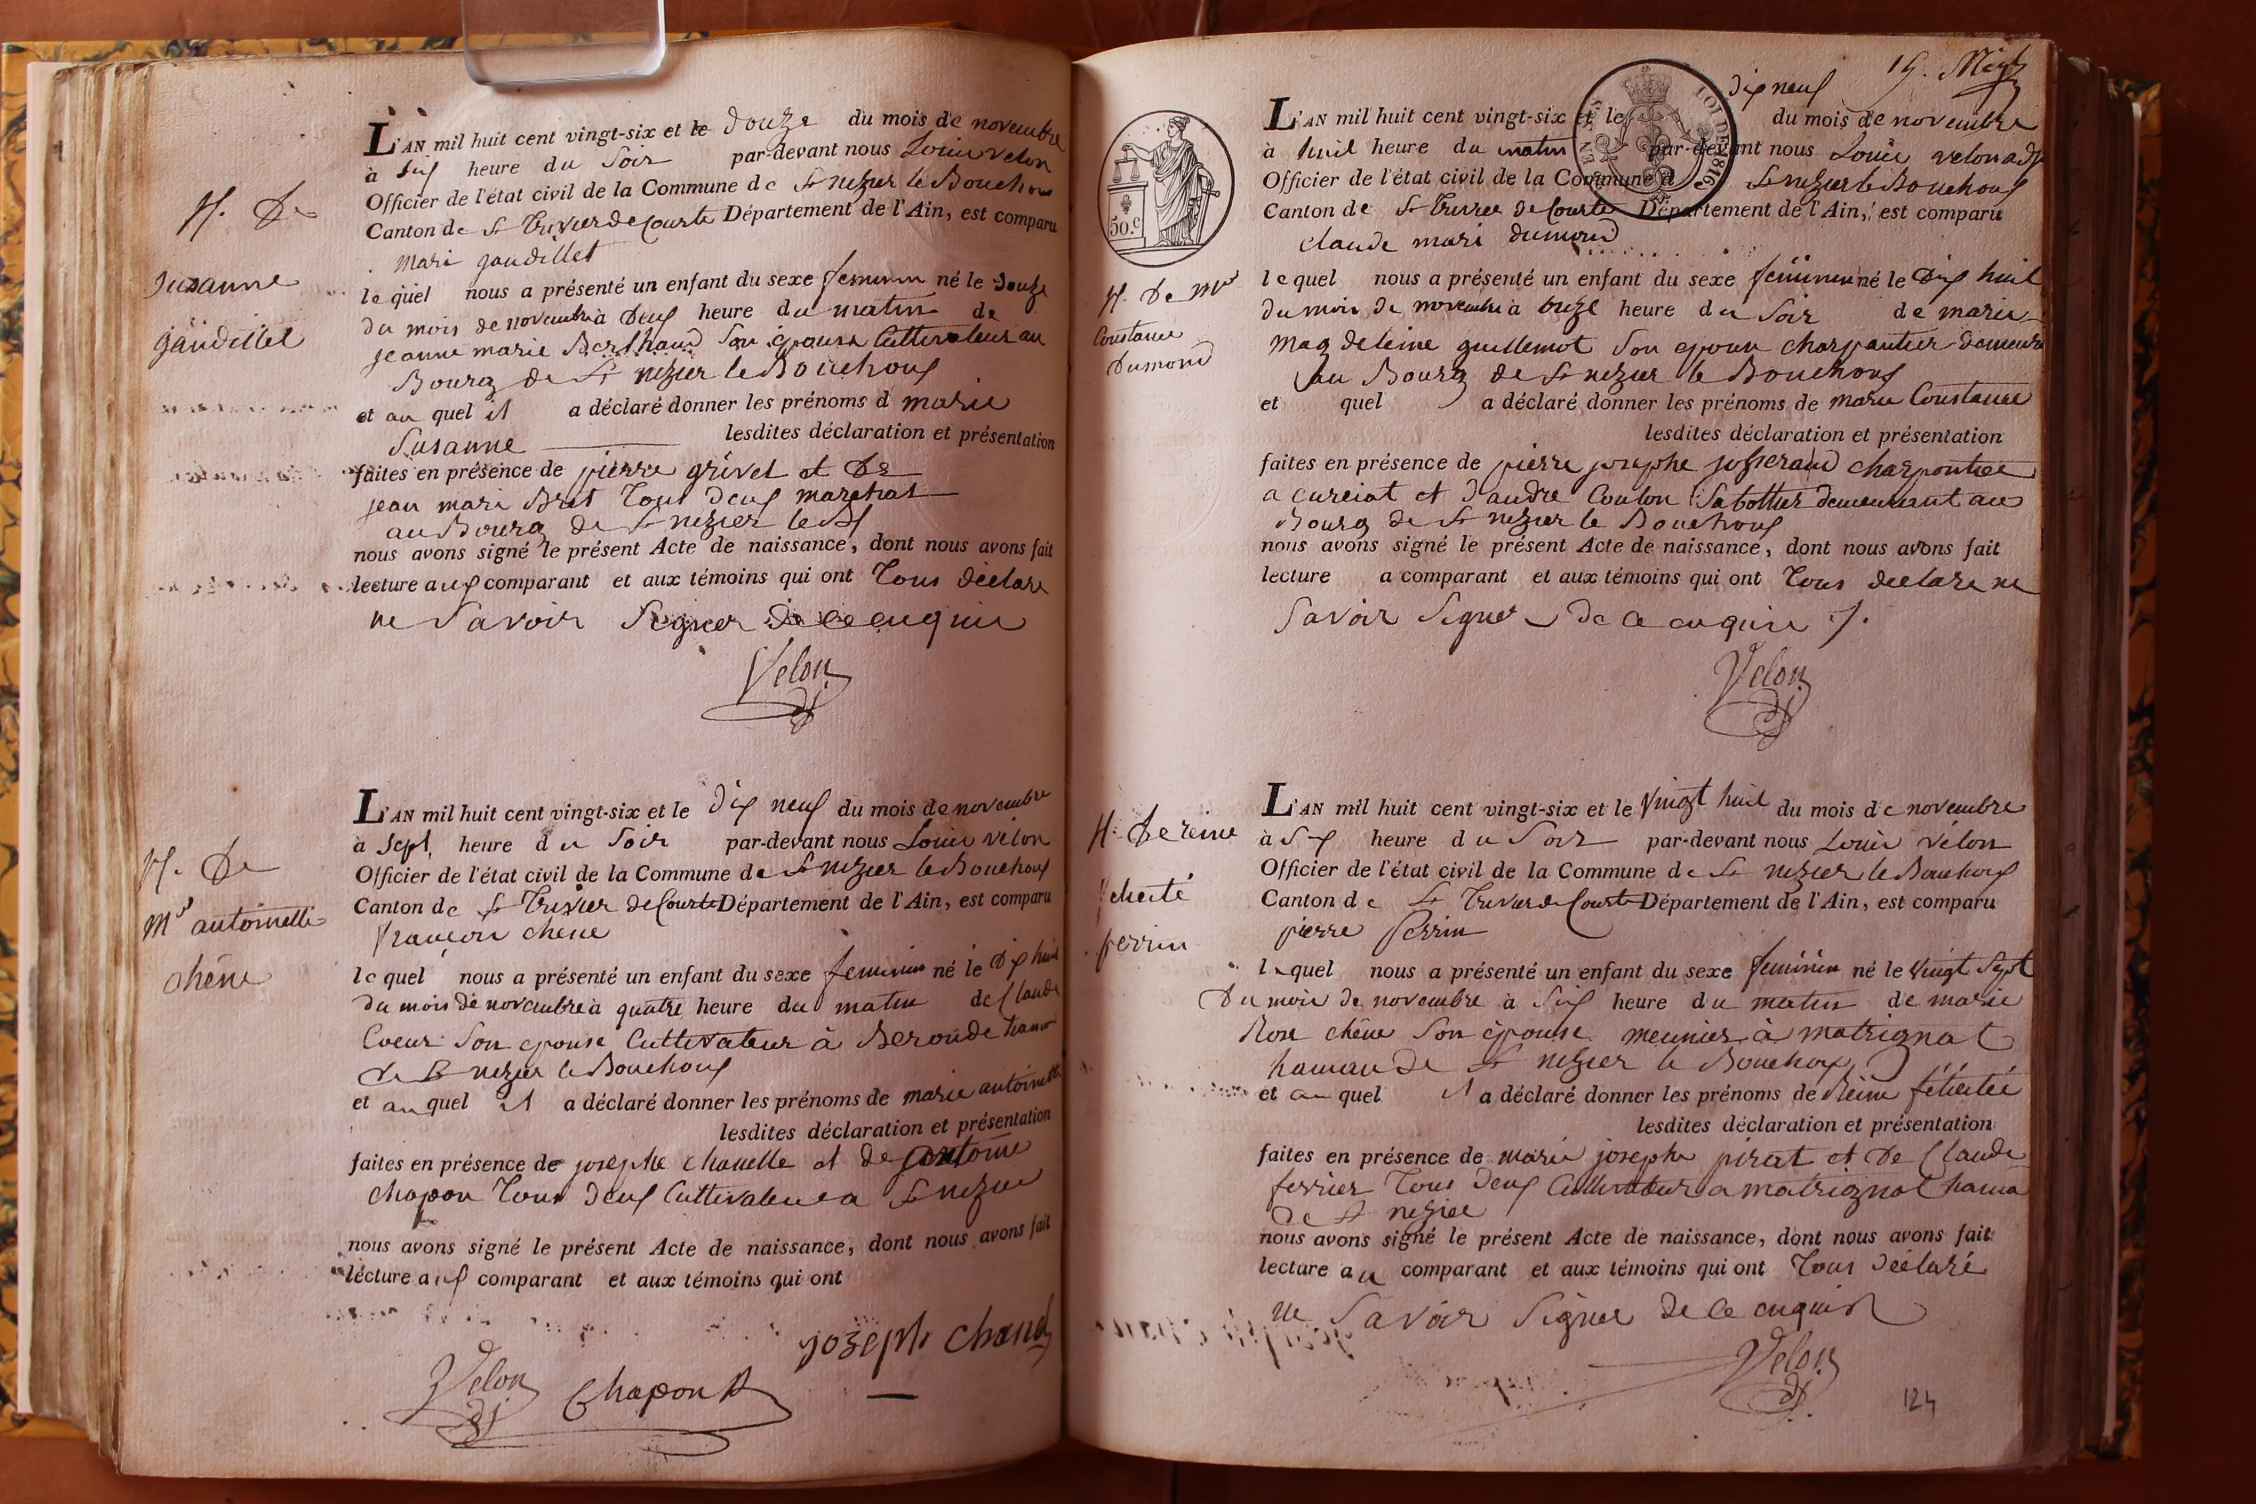 N. De
Susanne
gaudillet
L'AN mil huit cent vingt-six et le douze du mois de novembre
à six heure du soir par-devant nous Louis velon
Officier de l'état civil de la Commune de St nizier le Bouchoux
Canton de St Trivier de Courte Département de l'Ain, est comparu
mari gaudillet
lequel nous a présenté un enfant du sexe feminin né le douze
du mois de novembre à deux heure du matin de
jeanne marie Berthaud son epouse Cultivateur au
Bourg de St nizier le Bouchoux
et au quel il a déclaré donner les prénoms d marie
Susanne lesdites déclaration et présentation
faites en présence de pierre grivet et De
jean mari Bret Tous deux marchat
au Bourg de St nizier le B
nous avons signé le présent Acte de naissance, dont nous avons fait
lecture aux comparant et aux témoins qui ont Tous déclare
ne Savoir Signer de ce enquis
Velon
N. De
Mie antoinette
chêne
L'AN mil huit cent vingt-six et le dix neuf du mois de novembre
à Sept heure du Soir par-devant nous Louis vélon
Officier de l'état civil de la Commune de St nizier le Bouchoux
Canton de St Trivier de Courte Département de l'Ain, est comparu
françois chene
lequel nous a présenté un enfant du sexe feminin né le dix huit
du mois de novembre à quatre heure du matin de Claude
Coeur Son epouse Cultivateur à Beronde hamo
de St nizier le Bouchoux
et au quel il a déclaré donner les prénoms de marie antoinette
lesdites déclaration et présentation
faites en présence de josephe chanelle et de antoine
chapon Tous deux Cultivateur a St nizier
nous avons signé le présent Acte de naissance, dont nous avons fait
lecture aux comparant et aux témoins qui ont
joseph chanel
Velon chapon
15.
50.c
LOI DE 1816
N. De Mie
Constance
dumond
L'AN mil huit cent vingt-six et le dix neuf du mois de novembre
à huit heure du matin par-devant nous Louis velon adj
Officier de l'état civil de la Commune d St nizier le Bouchoux
Canton de St Trivier de Courte Département de l'Ain, est comparu
claude mari dumond
lequel nous a présenté un enfant du sexe féminin né le dix huit
du mois de novembre à onze heure du Soir de marie
magdeleine guillemot Son epouse charpantier demeurant
au Bourg de St nizier le Bouchoux
et quel a déclaré donner les prénoms de marie Constance
lesdites déclaration et présentation
faites en présence de pierre josephe josserand charpontier
a curciat et d'andre Coulon Sabottier demeurant au
Bourg de St nizier le Bouchoux
nous avons signé le présent Acte de naissance, dont nous avons fait
lecture a comparant et aux témoins qui ont Tous declare ne
Savoir Signer de ce enquis
Velon
N. De reine
felicité
perrin
L'AN mil huit cent vingt-six et le vingt huit du mois de novembre
à Six heure du Soir par-devant nous Louis vélon
Officier de l'état civil de la Commune de St nizier le Bouchoux
Canton de St Trivier de Courte Département de l'Ain, est comparu
pierre perrin
lequel nous a présenté un enfant du sexe feminin né le vingt Sept
du mois de novembre à Six heure du matin de marie
Rose chêne Son épouse meunier à matrignat
hamau de St nizier le Bouchoux
et au quel il a déclaré donner les prénoms de Reine félicitée
lesdites déclaration et présentation
faites en présence de marie josephe pirat et de Claude
ferrier Tous deux Cultivateur a matrignat hama
de St nizier
nous avons signé le présent Acte de naissance, dont nous avons fait
lecture au comparant et aux témoins qui ont Tous déclaré
ne Savoir Signer de ce enquis
Velon
124